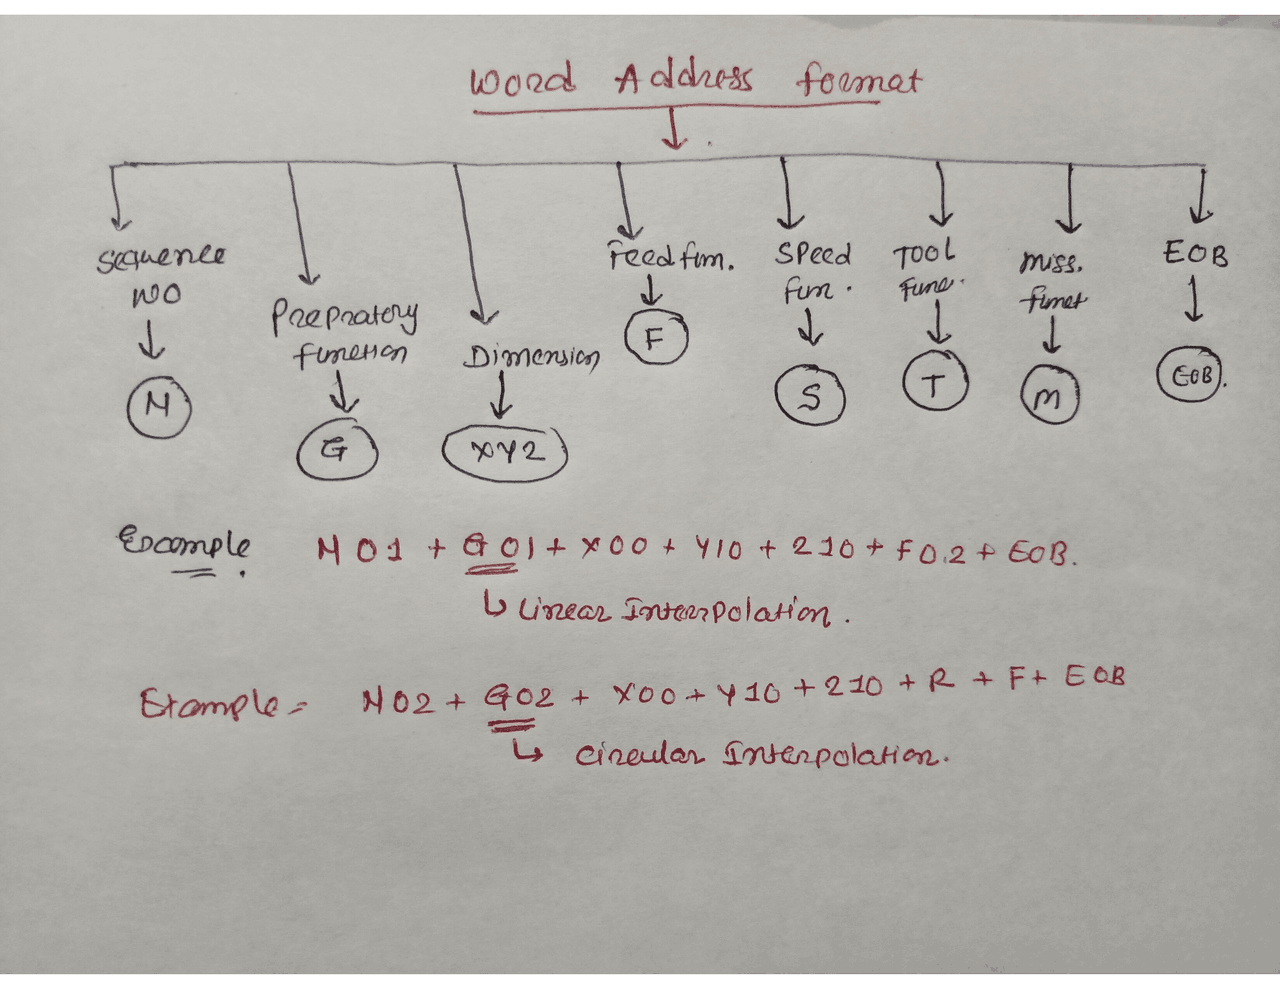 Word Address format
Sequence NO
Prepratory function
Dimension
Feed fun.
Speed fun.
TOOL func.
Miss. funct
EOB
N
G
XYZ
F
S
T
M
EOB.
Example N01 + G01 + X00 + Y10 + Z10 + F0.2 + EOB.
↳ Linear Interpolation.
Example = N02 + G02 + X00 + Y10 + Z10 + R + F + EOB
↳ Circular Interpolation.